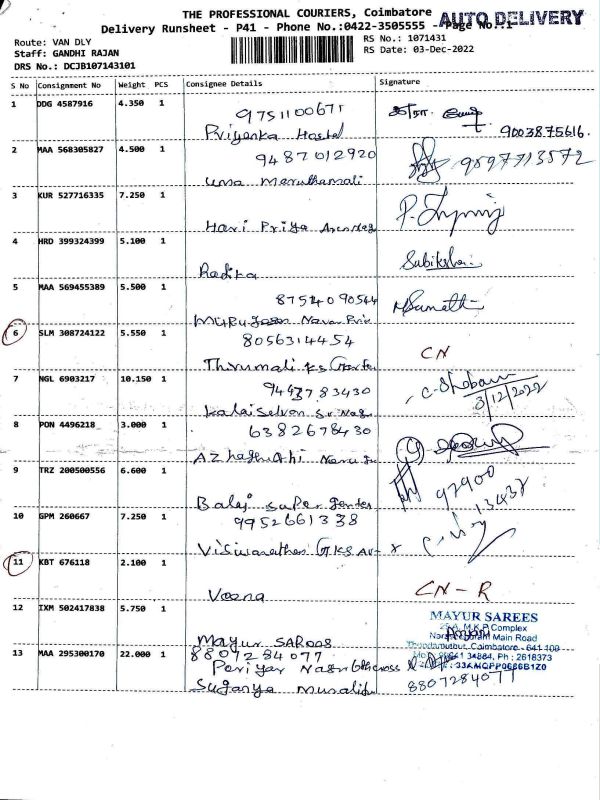 THE PROFESSIONAL COURIERS, Coimbatore
Delivery Runsheet - P41 - Phone No.:0422-3505555 - Page No.:1
AUTO DELIVERY
Route: VAN DLY
RS No.: 1071431
Staff: GANDHI RAJAN
RS Date: 03-Dec-2022
DRS No.: DCJB107143101
S No Consignment No Weight PCS Consignee Details Signature
1 DDG 4587916 4.350 1 9751100671
Priyanka Hostel 9003875616.
2 MAA 568305827 4.500 1 9487012920 9597713572
Uma Maruthamali
3 KUR 527716335 7.250 1
Hari Priya
4 HRD 399324399 5.100 1
Radika Subiksha
5 MAA 569455389 5.500 1 8754090544
Murugasan
6 SLM 308724122 5.550 1 8056314454
Thirumali CN
7 NGL 6903217 10.150 1 9443783430 C-Shobana
3/12/2022
Kalaiselvan
8 PON 4496218 3.000 1 6382678430
9 TRZ 200500556 6.600 1 97900
13437
Balaj super
10 GPM 260667 7.250 1 9952661338
Viswanathan
11 KBT 676118 2.100 1
Veena CN - R
12 IXM 502417838 5.750 1 MAYUR SAREES
25-A, M.K.P. Complex
Main Road
Coimbatore - 641 109
Mayur
Ph : 2618373
13 MAA 295300170 22.000 1 8807284077
Periyar 8807284077
Suganya